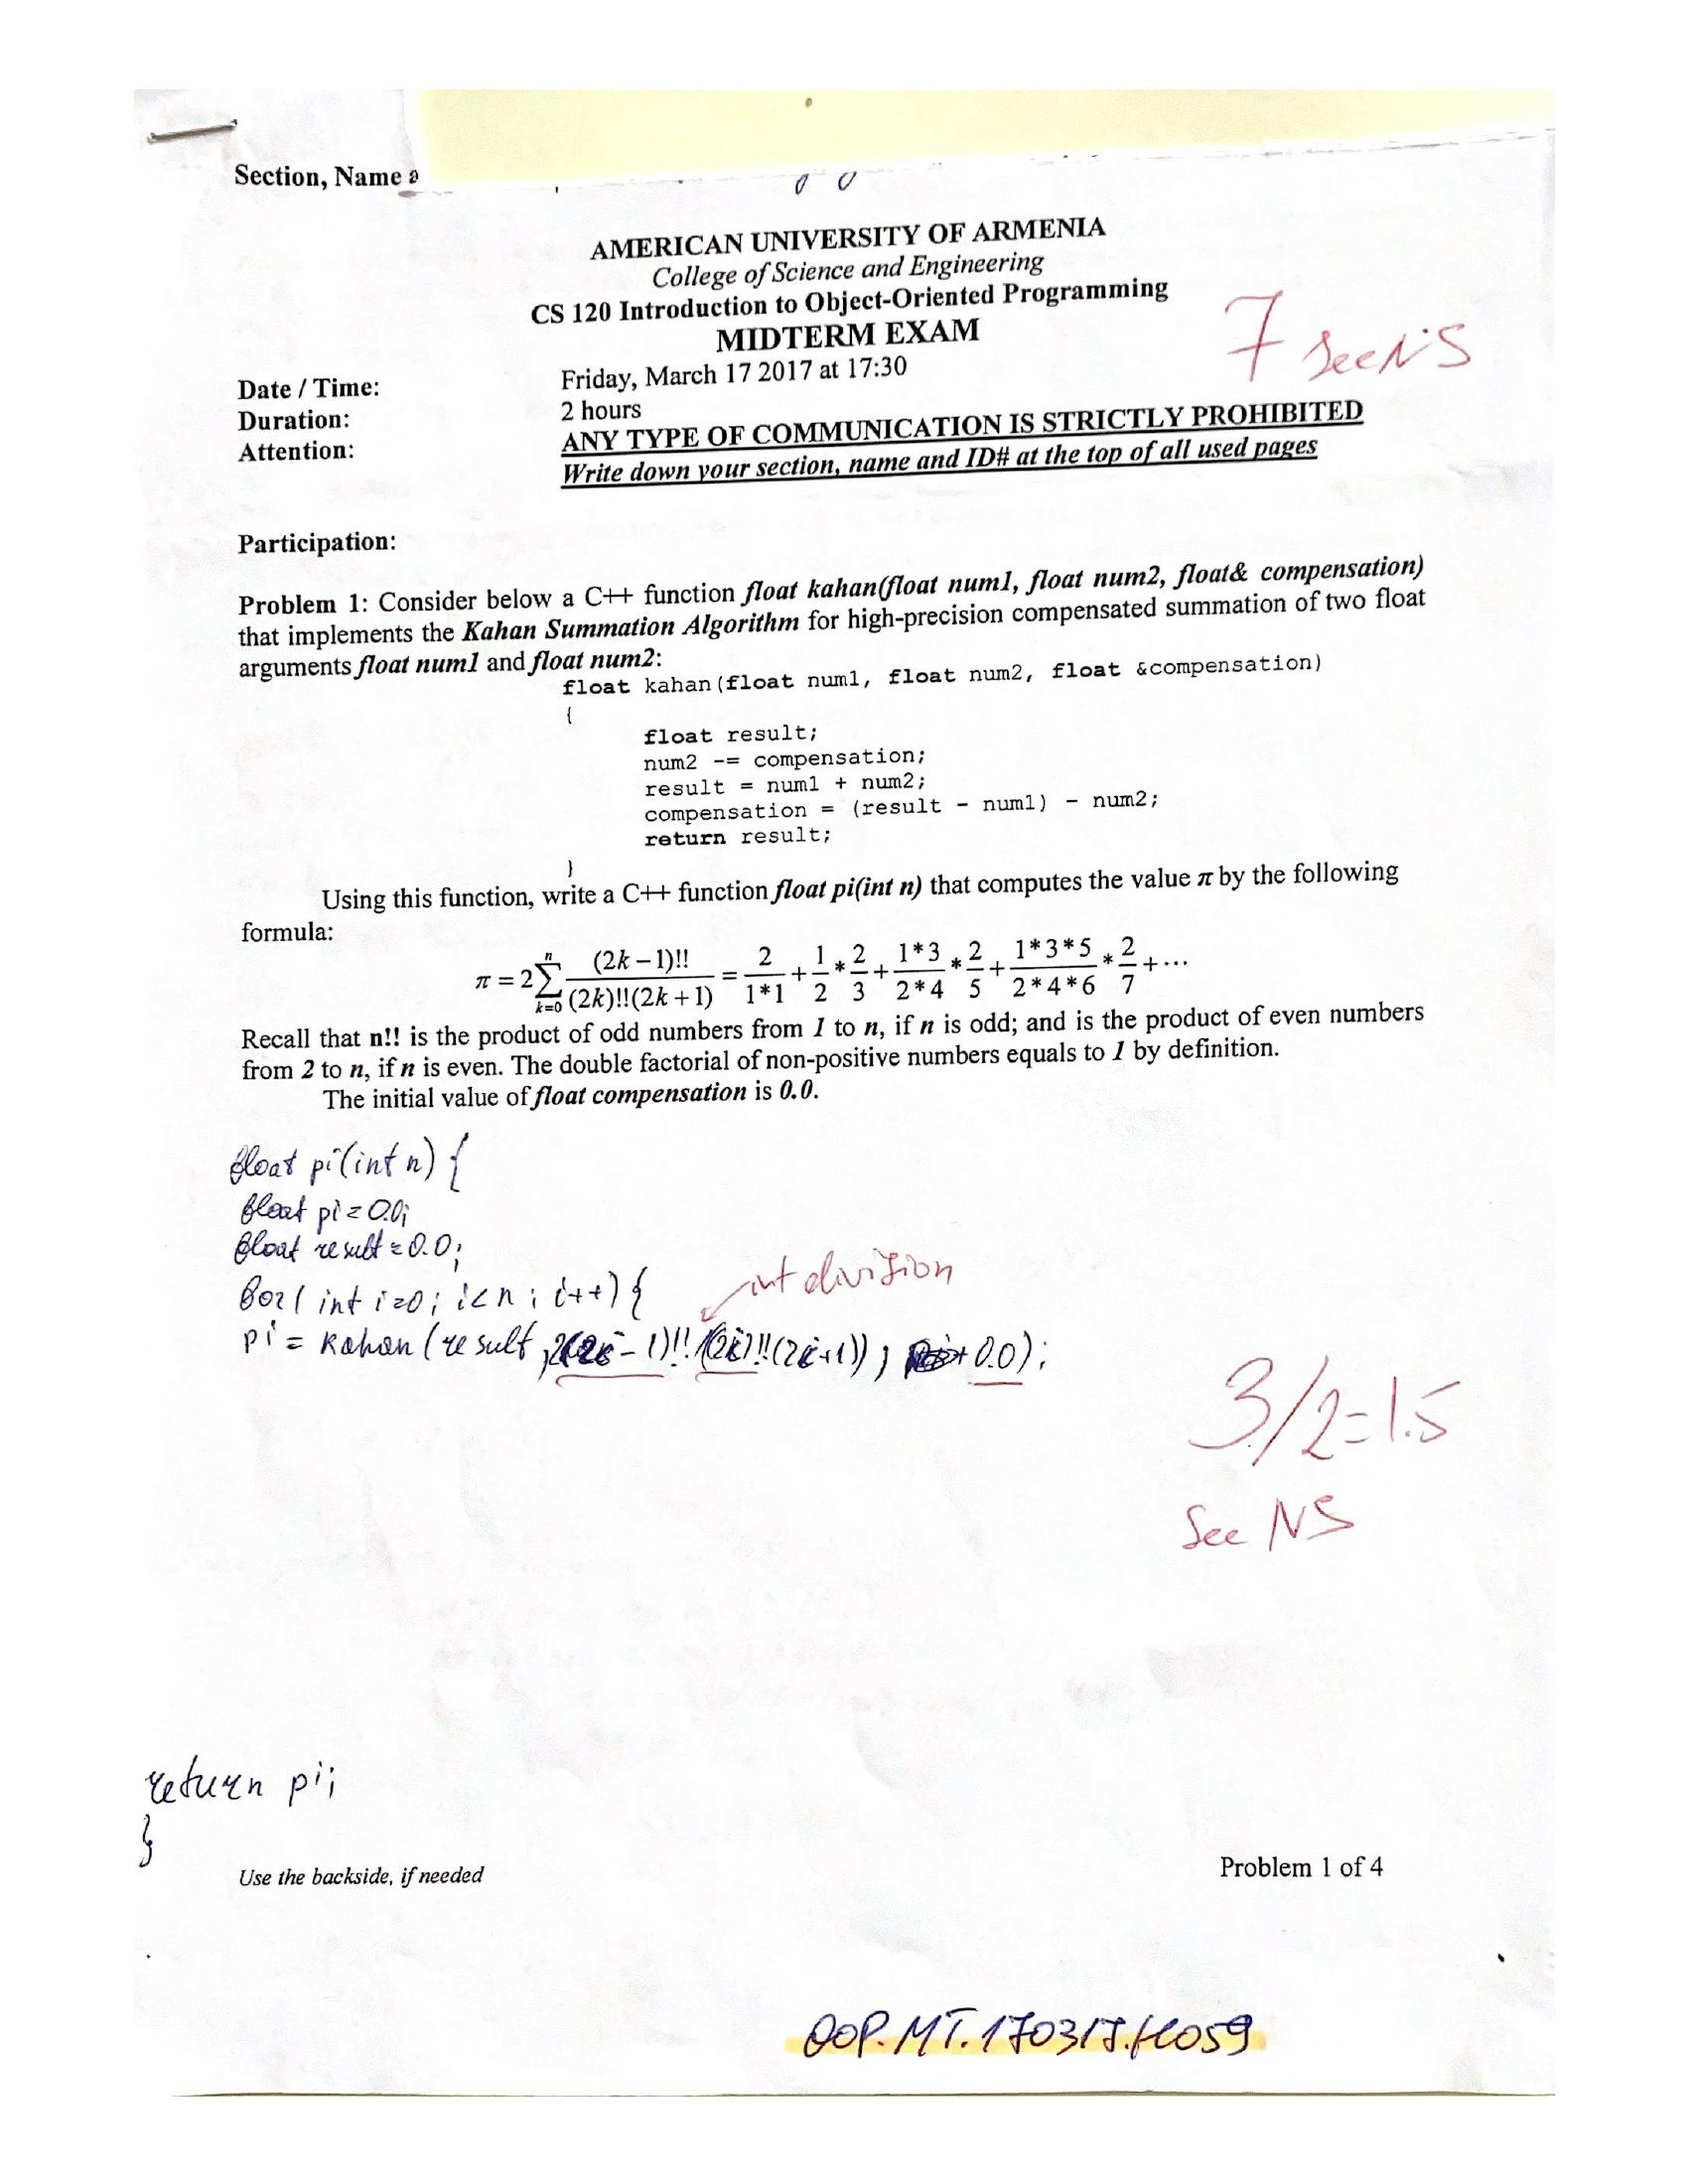 Section, Name
AMERICAN UNIVERSITY OF ARMENIA
College of Science and Engineering
CS 120 Introduction to Object-Oriented Programming
MIDTERM EXAM
7 See NS
Date / Time: Friday, March 17 2017 at 17:30
Duration: 2 hours
Attention: ANY TYPE OF COMMUNICATION IS STRICTLY PROHIBITED
Write down your section, name and ID# at the top of all used pages
Participation:
Problem 1: Consider below a C++ function float kahan(float num1, float num2, float& compensation)
that implements the Kahan Summation Algorithm for high-precision compensated summation of two float
arguments float num1 and float num2:
float kahan(float num1, float num2, float &compensation)
{
float result;
num2 -= compensation;
result = num1 + num2;
compensation = (result - num1) - num2;
return result;
}
Using this function, write a C++ function float pi(int n) that computes the value π by the following
formula:
π = 2 ∑_{k=0}^{n} (2k-1)!! / ((2k)!!(2k+1)) = 2/(1*1) + 1/2 * 2/3 + (1*3)/(2*4) * 2/5 + (1*3*5)/(2*4*6) * 2/7 + ...
Recall that n!! is the product of odd numbers from 1 to n, if n is odd; and is the product of even numbers
from 2 to n, if n is even. The double factorial of non-positive numbers equals to 1 by definition.
The initial value of float compensation is 0.0.
float pi(int n) {
float pi = 0.0;
float result = 0.0;
for( int i=0; i<n; i++) {
int division
pi = kahan (result, 2(2i-1)!!/(2i)!!(2i+1)), 0.0);
3/2=1.5
See NS
return pi;
}
Use the backside, if needed
Problem 1 of 4